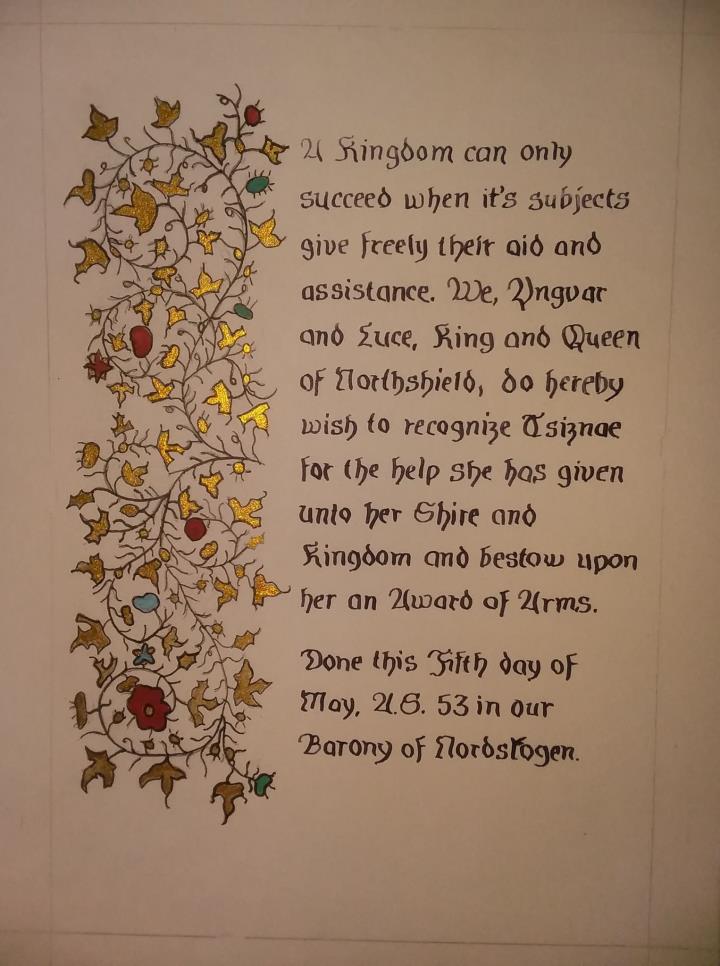 A Kingdom can only
succeed when it's subjects
give freely their aid and
assistance. We, Yngvar
and Luce, King and Queen
of Northshield, do hereby
wish to recognize Tsiznae
for the help she has given
unto her Shire and
Kingdom and bestow upon
her an Award of Arms.
Done this Fifth day of
May, A.S. 53 in our
Barony of Nordskogen.